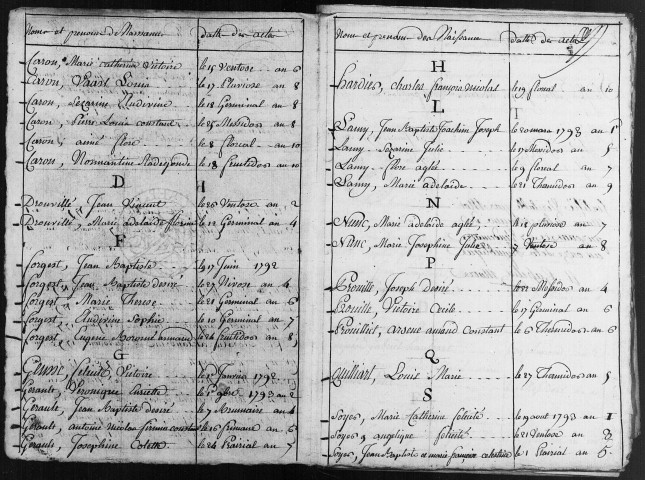 Noms et prenoms de Naissance Date des actes
Caron, Marie Catherine Victoire le 15 Ventose an 6
Caron, Vaast Louis le 17 Pluviose an 8
Caron, Sezarine Ludivine le 18 Germinal an 8
Caron, Pierre Louis constant le 25 Messidor an 8
Caron, aimé flore le 8 floreal an 10
Caron, Normantine Radegonde le 18 fructidor an 10
D
Drouville, Jean Vincent le 26 Ventose an 2
Drouville, Marie Adelaide florine le 12 Germinal an 4
F
Forgest, Jean Baptiste le 17 Juin 1792
Forgest, Jean Baptiste desiré le 23 Nivose an 4
Forgest, Marie Therese le 21 Germinal an 6
Forgest, Ludivine Sophie le 10 Germinal an 7
Forgest, Eugenie le 26 fructidor an 8
G
felicité Victoire le 1er Janvier 1792
Gerault, Veronique le 1er 1793 an 2
Gerault, Jean Baptiste desiré le 7 Brumaire an 4
Gerault, antoine Nicolas firmin constant le 26 frimaire an 6
Gerault, Josephine Colette le 24 Prairial an 7
Noms et prenoms des Naissance Date des actes
H
Hardier, charles françois nicolas le 19 floreal an 10
L
Lamy, Jean Baptiste Joachim Joseph le 20 mars 1793 an 1er
Lamy Sezarine Julie le 17 Messidor an 5
Lamy flore aglaé le 9 floreal an 7
Lamy, Marie adelaide le 21 Thermidor an 9
N
Marie adelaide aglaé le 18 pluviose an 7
Marie Josephine Julie le 7 Ventose an 8
P
Prouille, Joseph desiré le 21 Messidor an 4
Prouille, Victoire Cecile le 17 Germinal an 6
Prouillet, arsene amand Constant le 6 Thermidor an 6
Q
Quillart, Louis Marie le 27 Thermidor an 5
S
Soyes, Marie Catherine felicité le 19 aout 1793 an 1
Soyes angelique felicité le 21 Ventose an 8
Soyes, Jean Baptiste et marie françoise celestine le 1 Prairial an 5